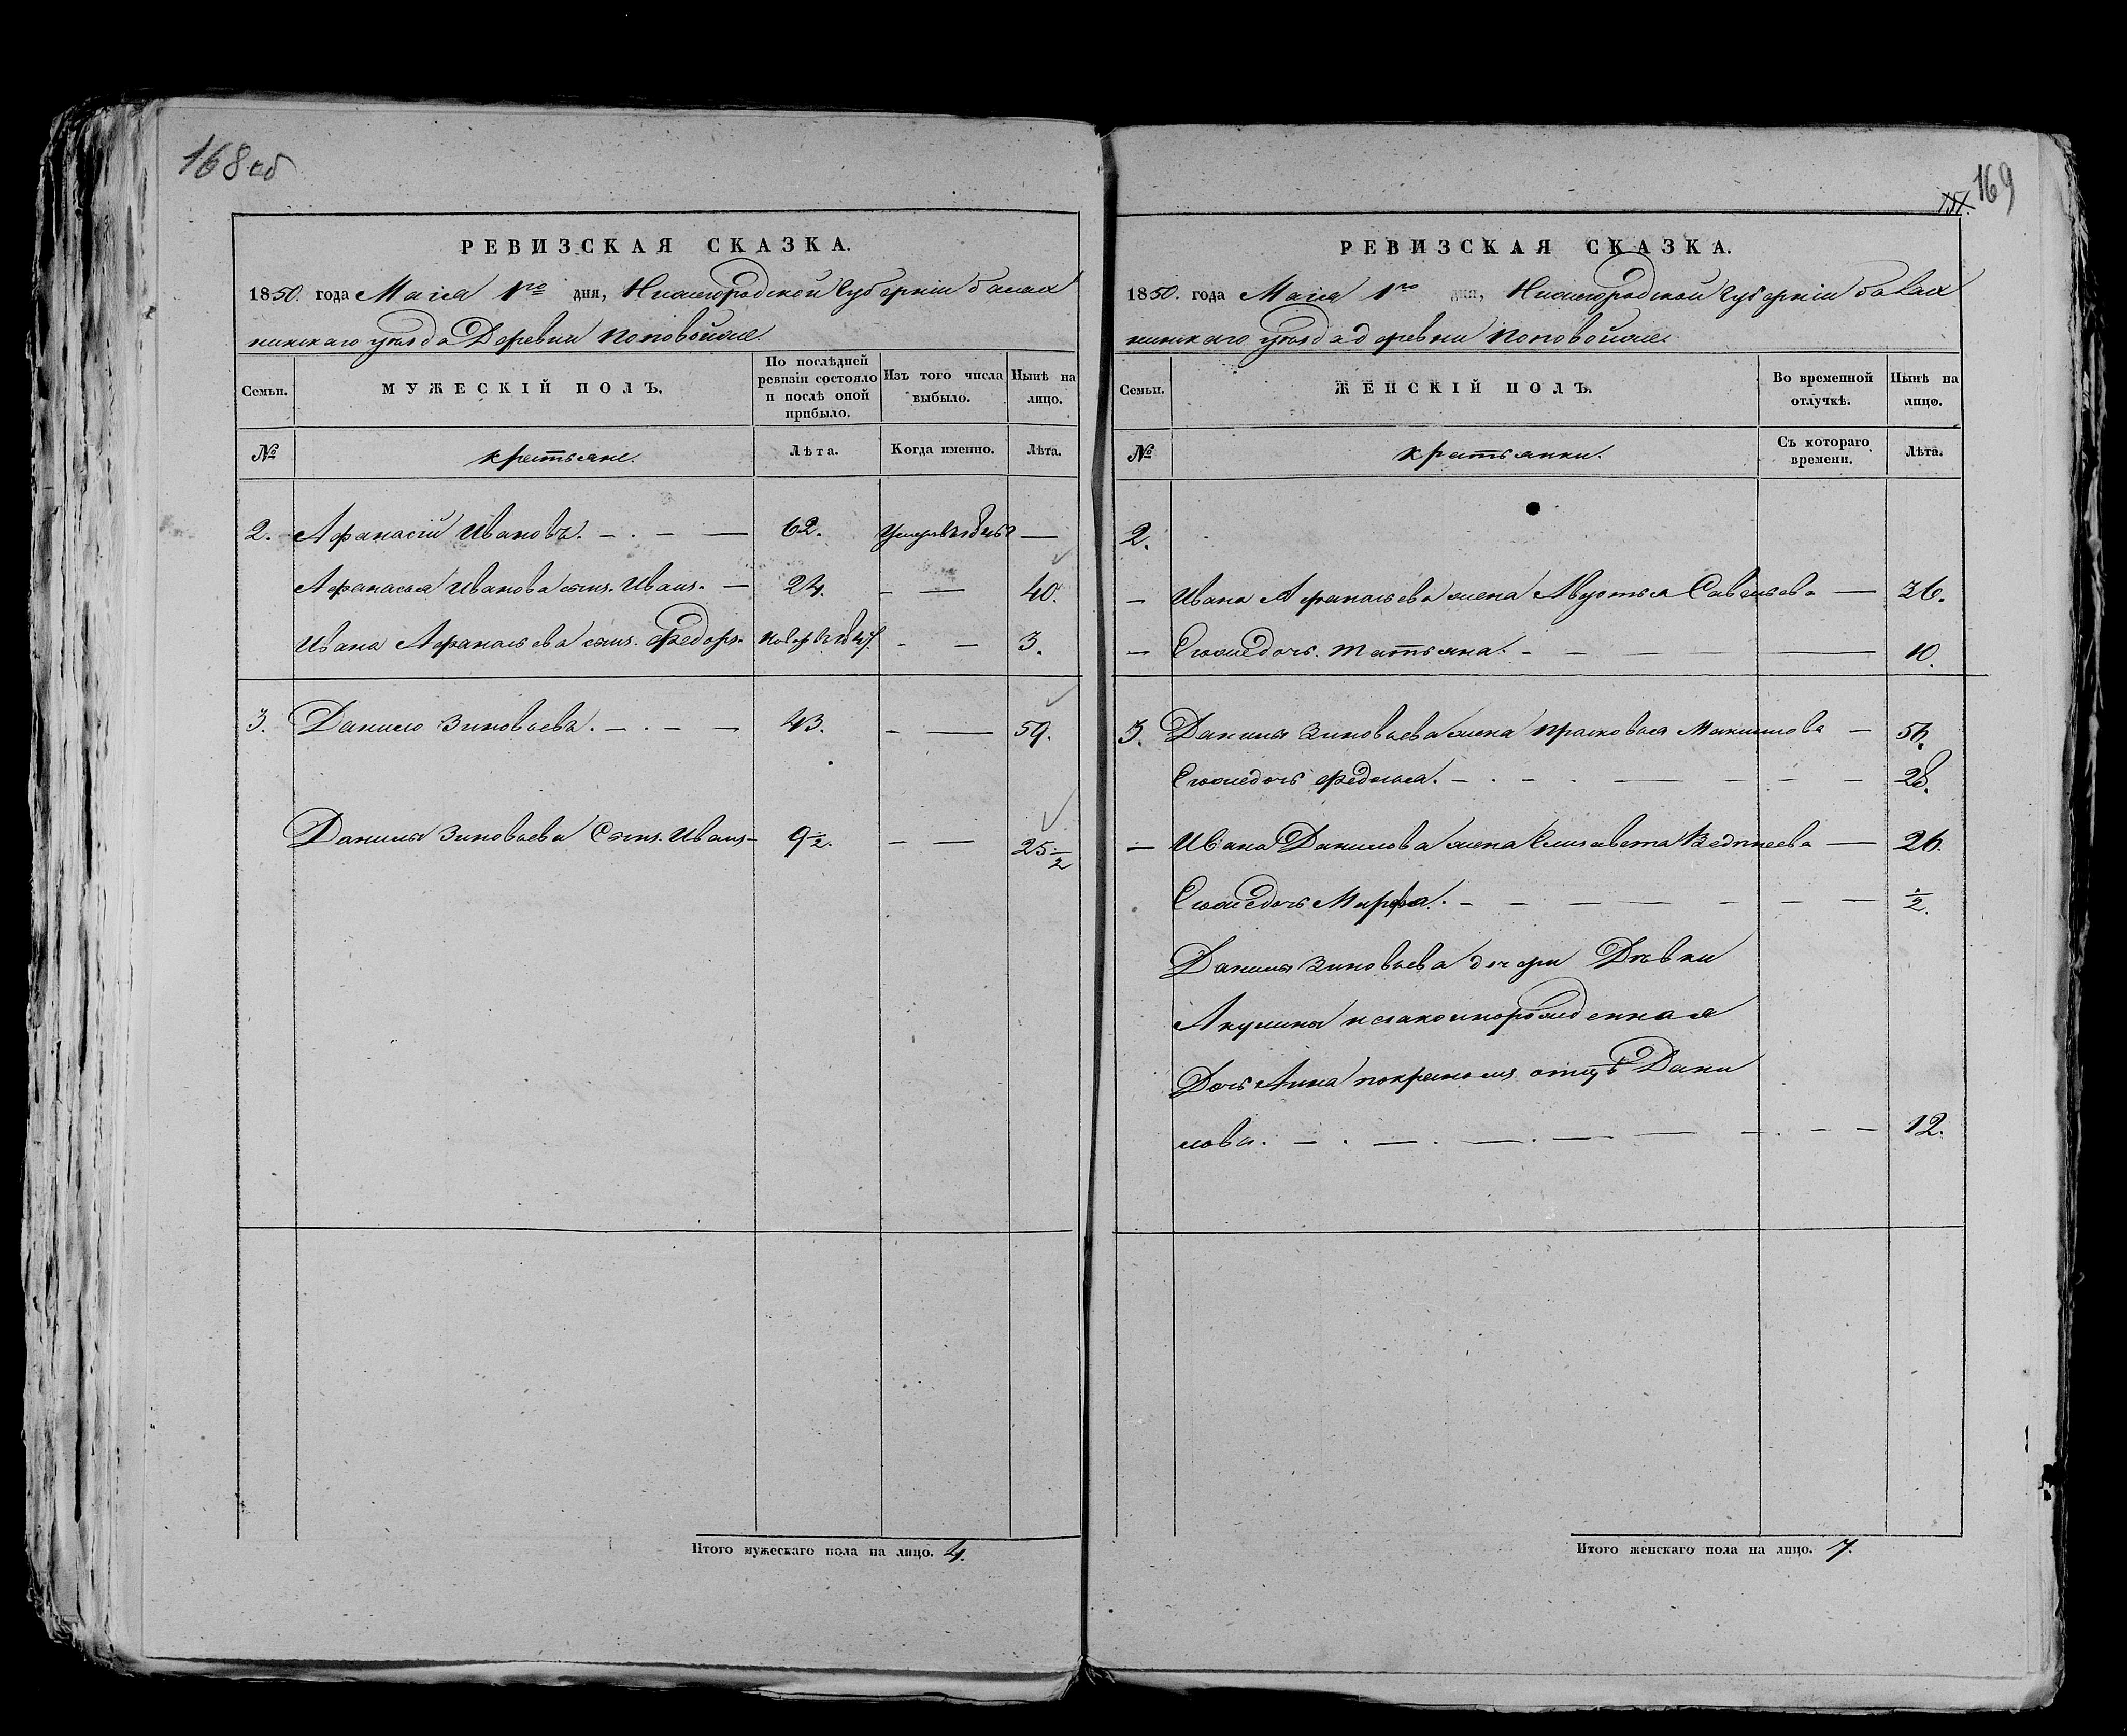 168 об
РЕВИЗСКАЯ СКАЗКА.
1850. года Маія 1го дня, Нижегородской Губерніи балах
нинскаго уѣзда Деревни
Семьи.
МУЖЕСКІЙ ПОЛЪ.
По послѣдней ревизіи состояло и послѣ оной прибыло.
Изъ того числа выбыло.
Нынѣ на лицо.
№
крестьяне.
Лѣта.
Когда именно.
Лѣта.
2. Афанасій Ивановъ. 62. —
Афанасья Иванова сынъ. Иванъ. 24. — 40.
Ивана Афанасьева сынъ. Федоръ. — 3.
3. Данило Зиновьевъ. 43. — 59.
Данилы Зиновьева Сынъ. Иванъ 9½. — 25½
Итого мужескаго пола на лицо. 4.
169
151.
РЕВИЗСКАЯ СКАЗКА.
1850. года Маія 1го дня, Нижегородской Губерніи балах
нинскаго уѣзда деревни
Семьи.
ЖЕНСКІЙ ПОЛЪ.
Во временной отлучкѣ.
Нынѣ на лицо.
№
крестьянки.
Съ котораго времени.
Лѣта.
2.
— Ивана Афанасьева жена Авдотья Савельева — 36.
— Егоже дочь. татьяна. — 10.
3. Данилы Зиновьева жена прасковья Максимова — 56.
Егоже дочь федосья. — 28.
— Ивана Данилова жена Елизавета — 26.
Егоже дочь Марфа. — ½.
Данилы Зиновьева дочери Дѣвки
Акулины незаконнорожденная
Дочь Анна покрестномъ отцѣ Дани
лова. — 12.
Итого женскаго пола на лицо. 7.